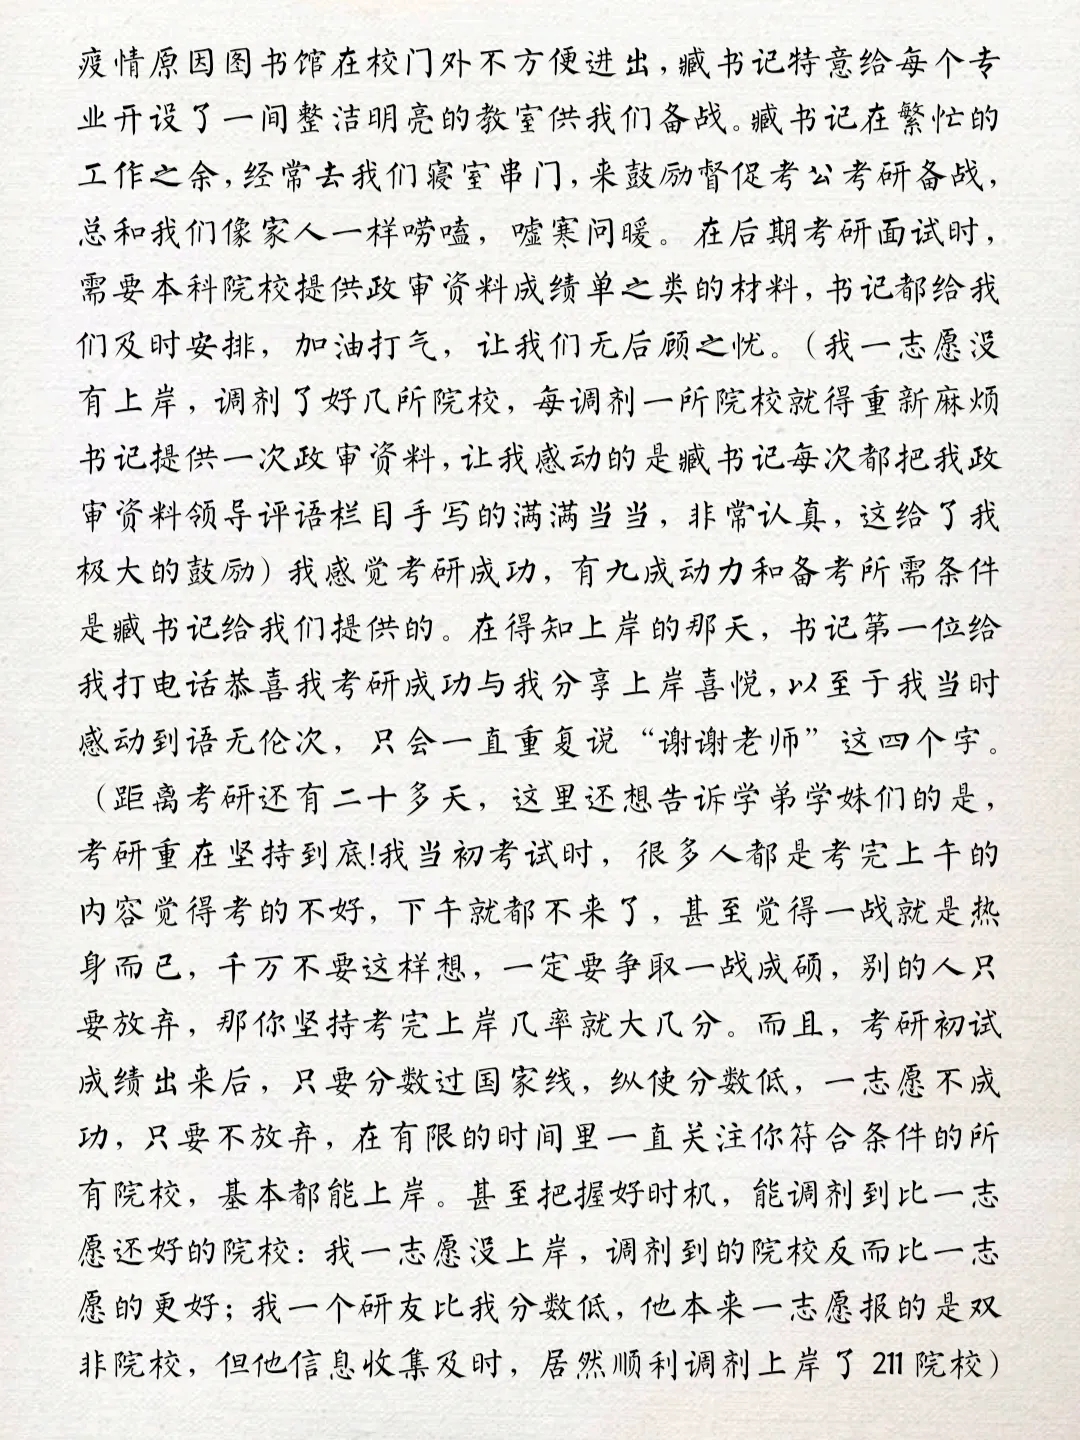 疫情原因图书馆在校门外不方便进出,臧书记特意给每个专
业开设了一间整洁明亮的教室供我们备战。臧书记在繁忙的
工作之余,经常去我们寝室串门,来鼓励督促考公考研备战,
总和我们像家人一样唠嗑，嘘寒问暖。在后期考研面试时，
需要本科院校提供政审资料成绩单之类的材料,书记都给我
们及时安排，加油打气，让我们无后顾之忧。（我一志愿没
有上岸，调剂了好几所院校，每调剂一所院校就得重新麻烦
书记提供一次政审资料,让我感动的是臧书记每次都把我政
审资料领导评语栏目手写的满满当当，非常认真，这给了我
极大的鼓励）我感觉考研成功，有九成动力和备考所需条件
是臧书记给我们提供的。在得知上岸的那天，书记第一位给
我打电话恭喜我考研成功与我分享上岸喜悦,以至于我当时
感动到语无伦次，只会一直重复说“谢谢老师”这四个字。
（距离考研还有二十多天，这里还想告诉学弟学妹们的是，
考研重在坚持到底!我当初考试时，很多人都是考完上午的
内容觉得考的不好，下午就都不来了，甚至觉得一战就是热
身而已，千万不要这样想，一定要争取一战成硕，别的人只
要放弃，那你坚持考完上岸几率就大几分。而且，考研初试
成绩出来后，只要分数过国家线，纵使分数低，一志愿不成
功，只要不放弃，在有限的时间里一直关注你符合条件的所
有院校，基本都能上岸。甚至把握好时机，能调剂到比一志
愿还好的院校：我一志愿没上岸，调剂到的院校反而比一志
愿的更好；我一个研友比我分数低，他本来一志愿报的是双
非院校，但他信息收集及时，居然顺利调剂上岸了211院校）